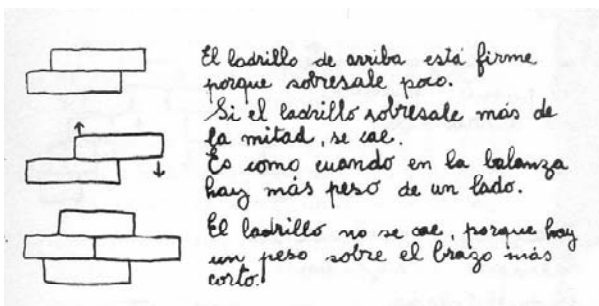 El ladrillo de arriba está firme
porque sobresale poco.
Si el ladrillo sobresale más de
la mitad, se cae.
Es como cuando en la balanza
hay más peso de un lado.
El ladrillo no se cae, porque hay
un peso sobre el brazo más
corto.